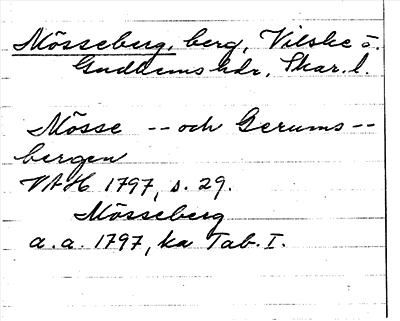 Mösseberg, berg, Vilske o.
Gudhems hdr, Skar. l.
Mösse -- och Gerums --
bergen
VAH 1797, s. 29.
Mösseberg
a. a. 1797, ka Tab. I.